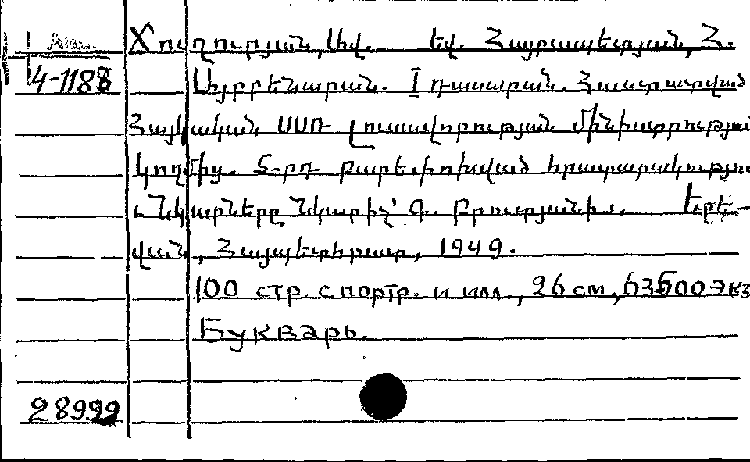 Խուղուրյան, Ավ. եվ. Հայրապետյան, Հ.
4-1188 Այբբենարան. I դասարան. Հաստատված
Հայկական ՍՍՌ լուսավորության մինիստրության
կողմից. 5-րդ բարեփոխված հրատարակություն
Նկարները նկարիչ՝ Գ. Բրուտյանի. Երե-
վան, Հայպետհրատ, 1949.
100 стр. с портр. и илл., 26 см, 63500 экз
Букварь.
28999